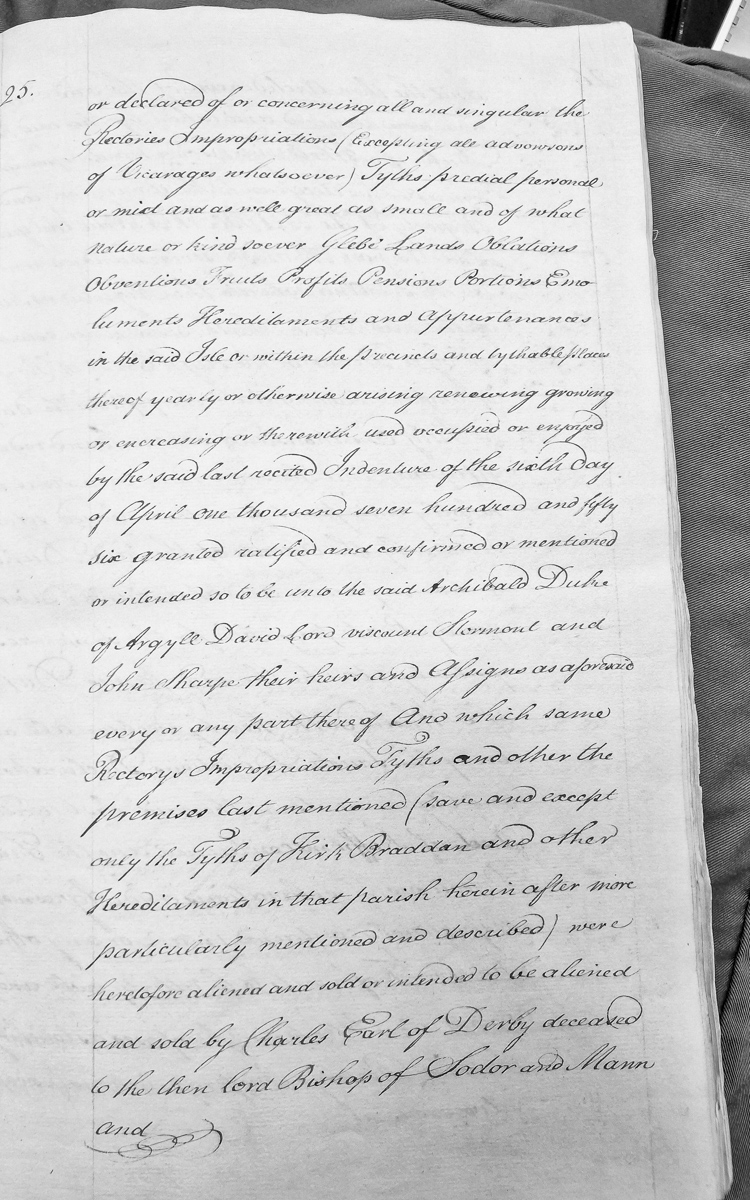 25.
or declared of or concerning all and singular the
Rectories Impropriations (Excepting all advowsons
of Vicarages whatsoever) Tyths predial personal
or mixt and as well great as small and of what
nature or kind soever Glebe Lands Oblations
Obventions Fruits Profits Pensions Portions Emo-
luments Hereditaments and Appurtenances
in the said Isle or within the precincts and tythable places
thereof yearly or otherwise arising renewing growing
or encreasing or therewith used occupied or enjoyed
by the said last recited Indenture of the sixth Day
of April one thousand seven hundred and fifty
six granted ratified and confirmed or mentioned
or intended so to be unto the said Archibald Duke
of Argyll David Lord viscount Stormont and
John Sharpe their heirs and Assigns as aforesaid
every or any part thereof And which same
Rectorys Impropriations Tyths and other the
premises last mentioned (save and except
only the Tyths of Kirk Braddan and other
Hereditaments in that parish herein after more
particularly mentioned and described) were
heretofore aliened and sold or intended to be aliened
and sold by Charles Earl of Derby deceased
to the then lord Bishop of Sodor and Mann
and